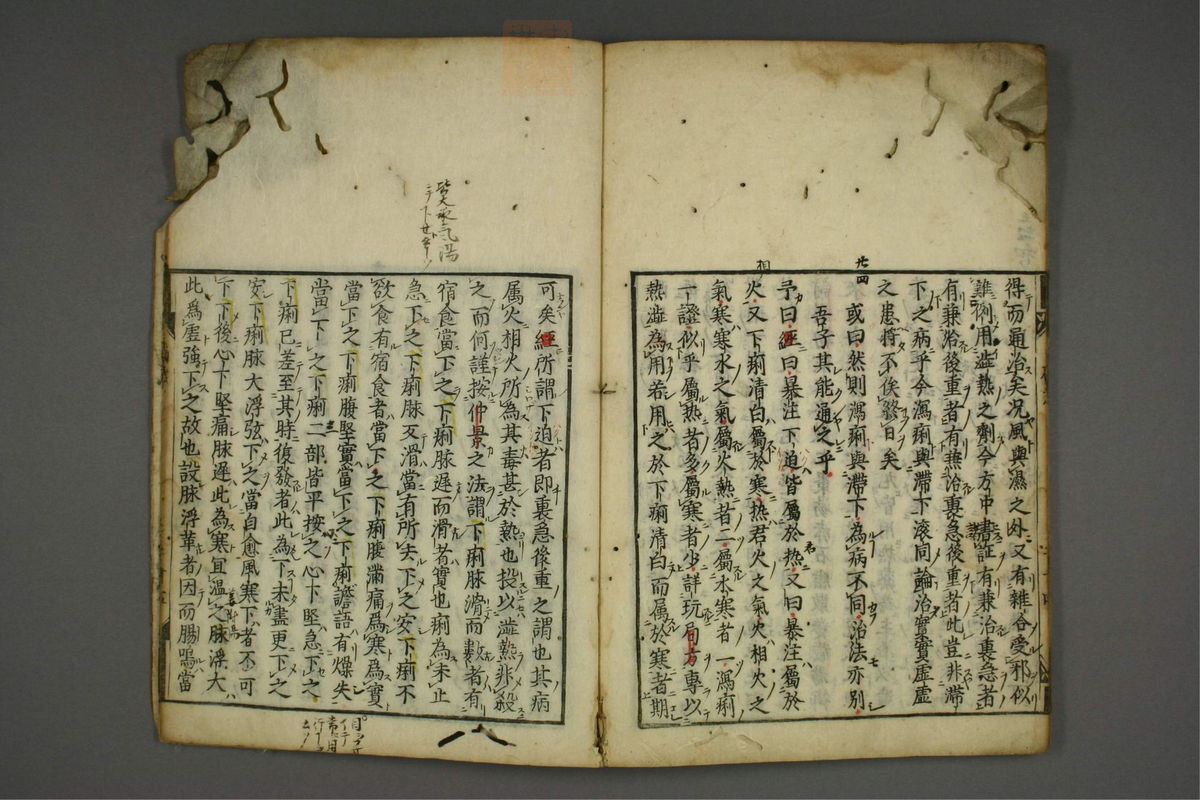 得而通治矣况風與濕之外又有雜合受邪似
難例用澁熱之劑今方中書証有兼治裏急者
有兼治後重者有兼治裏急後重者此豈非滯
下之病乎今瀉痢與滯下滚同論治實實虚虚
之患將不俟終日矣
或曰然則瀉痢與滯下為病不同治法亦別
吾子其能通之乎
予曰經曰暴注下迫皆屬於热又曰暴注屬於
火又下痢清白屬於寒热君火之氣火相火之
氣寒寒水之氣屬火熱者二屬水寒者一瀉痢
一證似乎屬热者多屬寒者少詳玩局方專以
熱澁為用若用之於下痢清白而属於寒者期
可矣經所謂下迫者即裏急後重之謂也其病
属火相火所為其毒甚於熱也投以澁熱非殺
之而何謹按仲景之法謂下痢脉滑而數者有
宿食當下之下痢脉遲而滑者實也痢為未止
急下之下痢脉反滑當有所去下之安下痢不
欲食有宿食者當下之下痢腹滿痛爲寒為實
當下之下痢腹堅實當下之下痢譫語有燥矢
當下之下痢二部皆平按之心下堅急下之
下痢已差至其時復發者此為下未盡更下之
安下痢脉大浮弦下之當自愈風寒下者不可
下下後心下堅痛脉遲此為寒宜温之脉浮大
此爲虚強下之故也設脉浮革者因而腸鳴當
廿四
相
皆大承氣湯